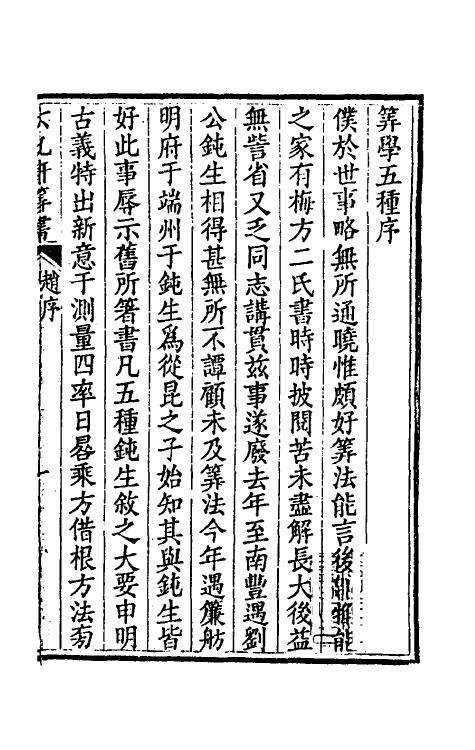 筭學五種序
僕於世事略無所通曉惟頗好筭法能言後
之家有梅方二氏書時時披閱苦未盡解長大後益
無訾省又乏同志講貫茲事遂廢去年至南豐遇劉
公鈍生相得甚無所不譚顧未及筭法今年遇簾舫
明府于端州于鈍生爲從昆之子始知其與鈍生皆
好此事辱示舊所箸書凡五種鈍生敘之大要申明
古義特出新意于測量四率日晷乘方借根方法匐
筭書
趙序
一